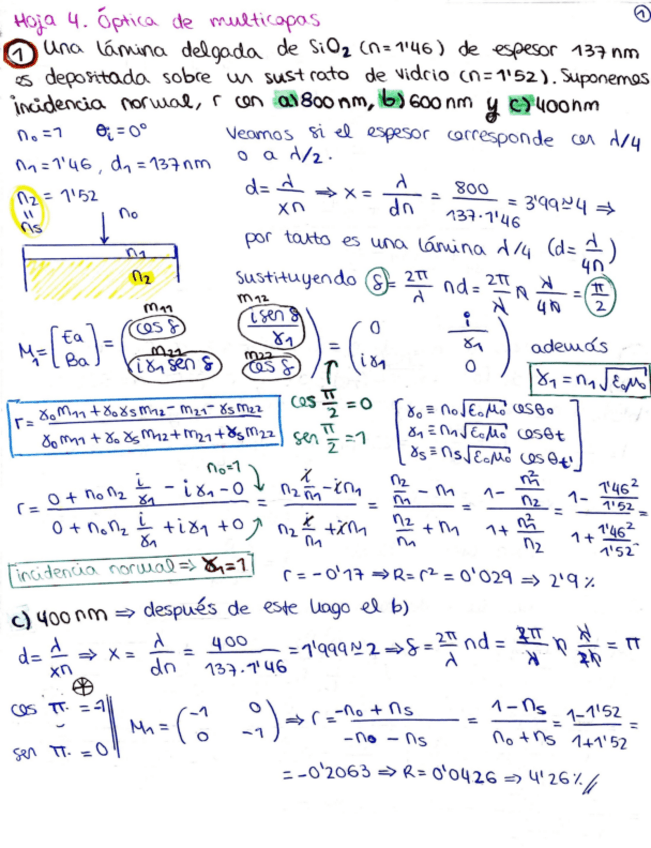 Hoja 4. Óptica de multicapas
1
① Una lámina delgada de SiO₂ (n=1'46) de espesor 137 nm
es depositada sobre un sustrato de vidrio (n=1'52). Suponemos
incidencia normal, r con a) 800 nm, b) 600 nm y c) 400 nm
n₀=1 θᵢ=0°
n₁=1'46, d₁=137nm
n₂ = 1'52
"
nₛ
n₀
n₁
n₂
Veamos si el espesor corresponde con λ/4
o a λ/2.
d = λ/xn ⇒ x = λ/dn = 800/137·1'46 = 3'99 ≃ 4 ⇒
por tanto es una lámina λ/4 (d = λ/4n)
sustituyendo δ = 2π/λ nd = 2π/λ n λ/4n = π/2
m₁₁ m₁₂
M₁ = [Ea Ba] = (cos δ i sen δ/γ₁ iγ₁ sen δ cos δ) = (0 i/γ₁ iγ₁ 0) además
m₂₁ m₂₂
γ₁ = n₁√ε₀μ₀
cos π/2 = 0
sen π/2 = 1
r = γ₀m₁₁ + γ₀γₛm₁₂ − m₂₁ − γₛm₂₂ / γ₀m₁₁ + γ₀γₛm₁₂ + m₂₁ + γₛm₂₂
γ₀ ≡ n₀√ε₀μ₀ cosθ₀
γ₁ ≡ n₁√ε₀μ₀ cosθt
γₛ ≡ nₛ√ε₀μ₀ cosθt'
n₀=1
r = 0 + n₀n₂ i/γ₁ − iγ₁ − 0 / 0 + n₀n₂ i/γ₁ + iγ₁ + 0 = n₂ i/n₁ − in₁ / n₂ i/n₁ + in₁ = n₂/n₁ − n₁ / n₂/n₁ + n₁ = 1 − n₁²/n₂ / 1 + n₁²/n₂ = 1 − 1'46²/1'52 / 1 + 1'46²/1'52 =
incidencia normal ⇒ γ₁=1
r = −0'17 ⇒ R = r² = 0'029 ⇒ 2'9 %
c) 400 nm ⇒ después de este hago el b)
d = λ/xn ⇒ x = λ/dn = 400/137·1'46 = 1'999 ≃ 2 ⇒ δ = 2π/λ nd = 2π/λ n λ/2n = π
⊕
cos π = −1
sen π = 0
M₁ = (−1 0 0 −1) ⇒ r = −n₀ + nₛ / −n₀ − nₛ = 1 − nₛ / n₀ + nₛ = 1 − 1'52 / 1 + 1'52 =
= −0'2063 ⇒ R = 0'0426 ⇒ 4'26 % //